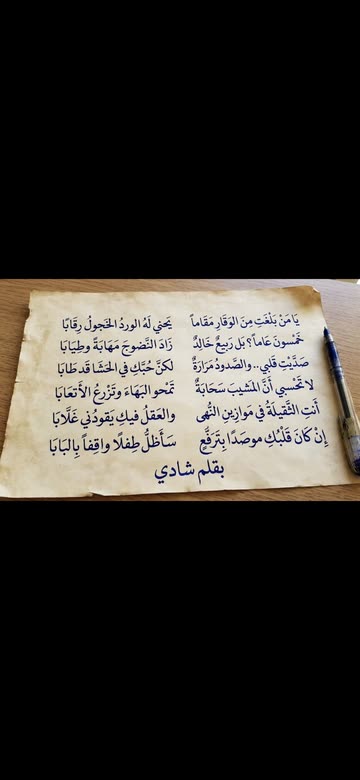 يَا مَنْ بَلَغْتِ مِنَ الوَقَارِ مَقَاماً يَحني لَهُ الوردُ الخَجولُ رِقَابًا
خَمْسونَ عَاماً؟ بَل رَبيعٌ خَالِدٌ زَادَ النُّضوجَ مَهَابَةً وطِيَابَا
صَدَّيْتِ قَلبي.. والصَّدودُ مَرَارَةٌ لكنَّ حُبَّكِ في الحَشَا قَد طَابَا
لا تَحْسبي أنَّ المَشيبَ سَحَابَةٌ تَمْحو البَهَاءَ وتَزْرعُ الأتعَابَا
أنتِ الثَّقيلَةُ في مَوَازينِ النُّهى والعَقلُ فيكِ يَقودُني غَلَّابَا
إنْ كَانَ قَلْبُكِ موصَدًا بِتَرَفَّعٍ سَأظَلُّ طِفلًا وَاقِفاً بِالبَابَا
بقلم شادي